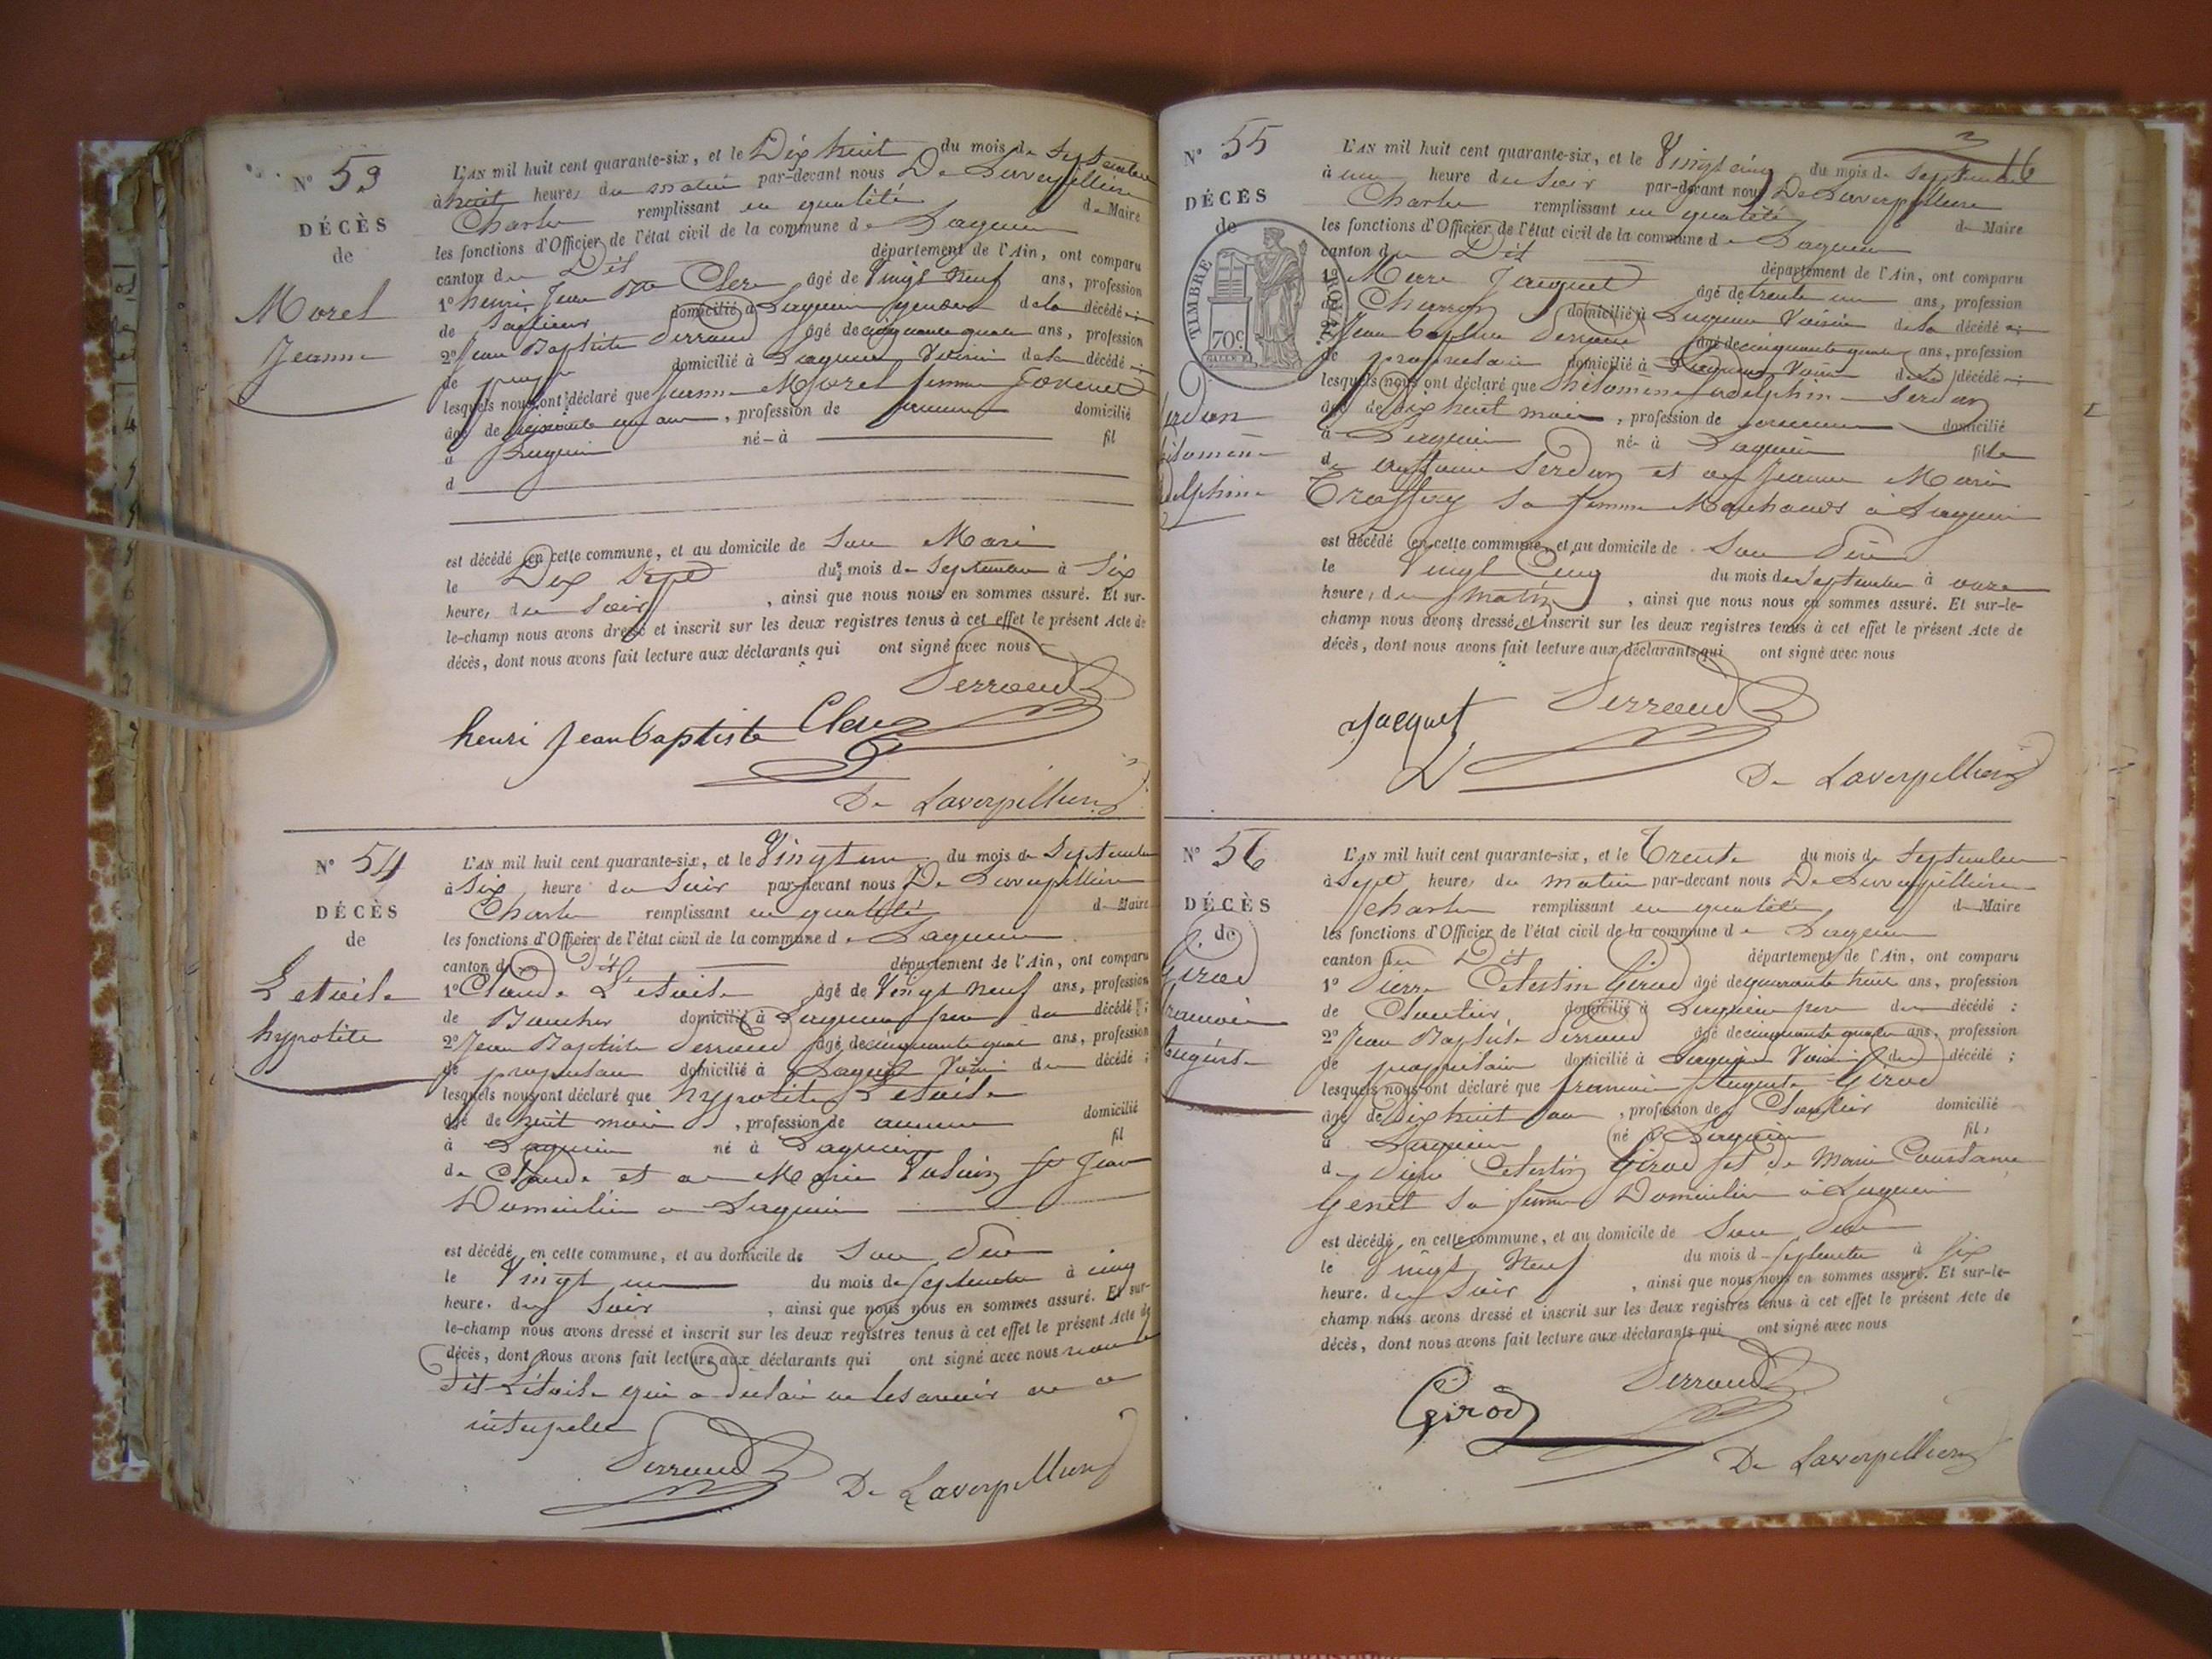 N° 53
DÉCÈS
de
Morel
Jeanne
L'AN mil huit cent quarante-six, et le Dix huit du mois de Septembre
à huit heures du matin par-devant nous De Laverpilliere
Charles remplissant en qualité de Maire
les fonctions d'Officier de l'état civil de la commune de Lagnieu
canton du Dit département de l'Ain, ont comparu
1° henri Jean Bte Clerc âgé de Vingt neuf ans, profession
de domicilié à Lagnieu gendre de la décédée
2° Jean Baptiste Serraud âgé de cinquante quatre ans, profession
de domicilié à Lagnieu Voisin de la décédée
lesquels nous ont déclaré que Jeanne Morel femme
âgé de soixante un ans, profession de aucune domicilié
à Lagnieu né à fil
d
est décédé en cette commune, et au domicile de Son Mari
le Dix Sept du mois de Septembre à Six
heures du Soir, ainsi que nous nous en sommes assuré. Et sur-
le-champ nous avons dressé et inscrit sur les deux registres tenus à cet effet le présent Acte de
décès, dont nous avons fait lecture aux déclarants qui ont signé avec nous
Serraud
henri Jean baptiste Clerc
De Laverpilliere
N° 54
DÉCÈS
de
Letoile
hypolite
L'AN mil huit cent quarante-six, et le Vingt un du mois de Septembre
à Six heure du Soir par-devant nous De Laverpilliere
Charles remplissant en qualité de Maire
les fonctions d'Officier de l'état civil de la commune de Lagnieu
canton du Dit département de l'Ain, ont comparu
1° Claude Létoile âgé de Vingt neuf ans, profession
de Boucher domicilié à Lagnieu pere du décédé;
2° Jean Baptiste Serraud âgé de cinquante quatre ans, profession
de proprietaire domicilié à Lagnieu Voisin du décédé;
lesquels nous ont déclaré que hypolite Letoile
âgé de huit mois, profession de aucune domicilié
à Lagnieu né à Lagnieu fil
de Claude et de Marie St Jean
Domiciliés a Lagnieu
est décédé en cette commune, et au domicile de Son Père
le Vingt un du mois de Septembre à cinq
heure. du Soir, ainsi que nous nous en sommes assuré. Et sur-
le-champ nous avons dressé et inscrit sur les deux registres tenus à cet effet le présent Acte de
décès, dont nous avons fait lecture aux déclarants qui ont signé avec nous non le
dit Létoile qui a declaré ne le savoir de ce
interpelé
Serraud
De Laverpilliere
N° 55
16
DÉCÈS
de
TIMBRE ROYAL
70c
Serdon
Philomène
Adelphine
L'AN mil huit cent quarante-six, et le Vingt cinq du mois de Septembre
à une heure du Soir par-devant nous De Laverpilliere
Charles remplissant en qualité de Maire
les fonctions d'Officier de l'état civil de la commune de Lagnieu
canton du Dit département de l'Ain, ont comparu
1° Jacquet âgé de trente un ans, profession
de Charron domicilié à Lagnieu Voisin de la décédée
2° Jean baptiste Serraud âgé de cinquante quatre ans, profession
de proprietaire domicilié à Lagnieu Voisin de la décédée
lesquels nous ont déclaré que Philomène Adelphine Serdon
âgé de dix huit mois, profession de aucune domicilié
à Lagnieu née à Lagnieu fille
de Antoine Serdon et de Jeanne Marie
sa femme Marchands à Lagnieu
est décédé en cette commune, et au domicile de Son Père
le Vingt Cinq du mois de Septembre à onze
heures, du matin, ainsi que nous nous en sommes assuré. Et sur-le-
champ nous avons dressé et inscrit sur les deux registres tenus à cet effet le présent Acte de
décès, dont nous avons fait lecture aux déclarants qui ont signé avec nous
Jacquet Serraud
De Laverpilliere
N° 56
DÉCÈS
de
Girod
François
Auguste
L'AN mil huit cent quarante-six, et le Trente du mois de Septembre
à Sept heures du matin par-devant nous De Laverpilliere
Charles remplissant en qualité de Maire
les fonctions d'Officier de l'état civil de la commune de Lagnieu
canton du Dit département de l'Ain, ont comparu
1° Pierre Celestin Girod âgé de quarante ans, profession
de domicilié à Lagnieu pere du décédé;
2° Jean Baptiste Serraud âgé de cinquante quatre ans, profession
de proprietaire domicilié à Lagnieu Voisin du décédé;
lesquels nous ont déclaré que François Auguste Girod
âgé de dix huit ans, profession de domicilié
à Lagnieu né à Lagnieu fils
de Pierre Celestin Girod et de Marie Constance
Genet sa femme Domiciliés à Lagnieu
est décédé en cette commune, et au domicile de Son Père
le Vingt Neuf du mois de Septembre à Six
heure. du Soir, ainsi que nous nous en sommes assuré. Et sur-le-
champ nous avons dressé et inscrit sur les deux registres tenus à cet effet le présent Acte de
décès, dont nous avons fait lecture aux déclarants qui ont signé avec nous
Serraud
Girod
De Laverpilliere